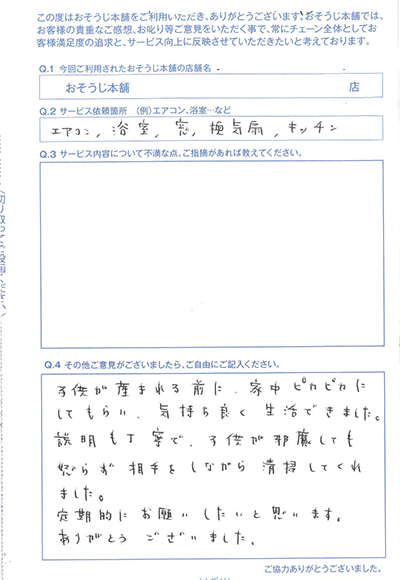 この度はおそうじ本舗をご利用いただき、ありがとうございます。おそうじ本舗では、
お客様の貴重なご感想、お叱り等ご意見をいただく事で、常にチェーン全体としてお
客様満足度の追求と、サービス向上に反映させていただきたいと考えております。
Q.1 今回ご利用されたおそうじ本舗の店舗名
おそうじ本舗 店
Q.2 サービス依頼箇所 (例)エアコン、浴室…など
エアコン, 浴室, 窓, 換気扇, キッチン
Q.3 サービス内容について不満な点、ご指摘があれば教えてください。
Q.4 その他ご意見がございましたら、ご自由にご記入ください。
子供が産まれる前に、家中ピカピカに
してもらい、気持ち良く生活できました。
説明も丁寧で、子供が邪魔しても
怒らず相手をしながら清掃してくれ
ました。
定期的にお願いしたいと思います。
ありがとうございました。
ご協力ありがとうございました。